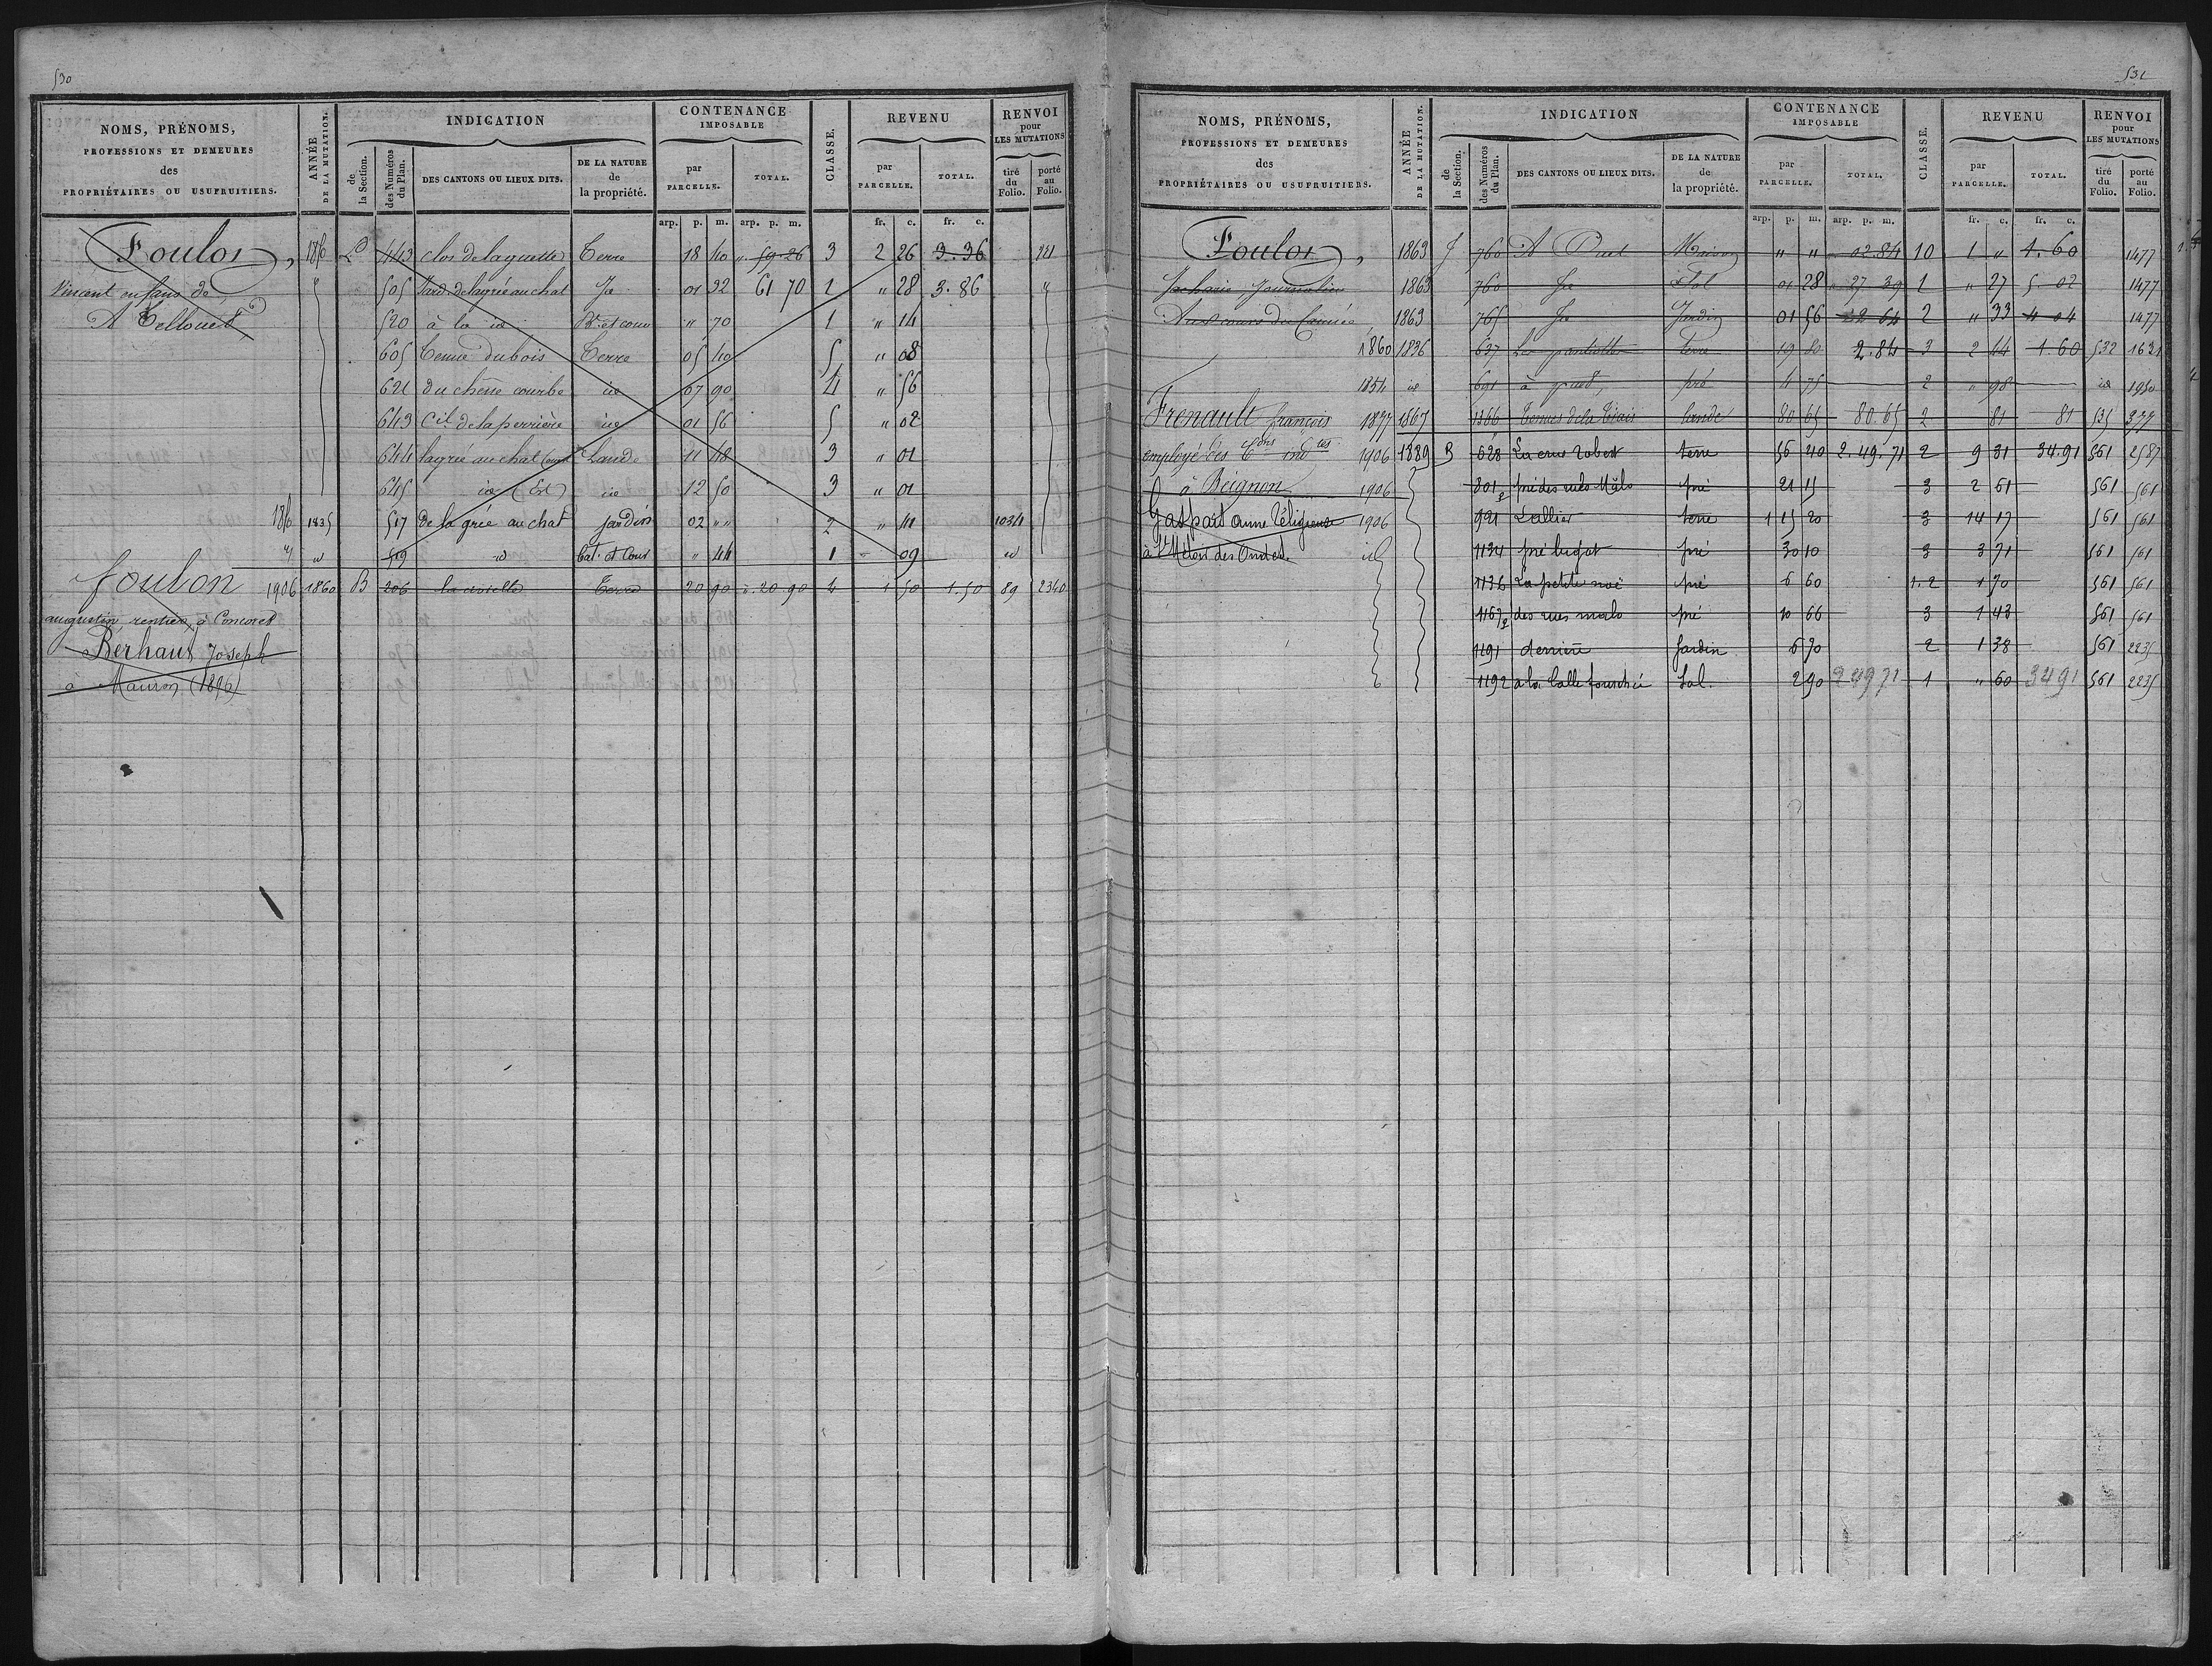 530
NOMS, PRÉNOMS,
PROFESSIONS ET DEMEURES
des
PROPRIÉTAIRES OU USUFRUITIERS.
ANNÉE
DE LA MUTATION.
INDICATION
de
la Section.
des Numéros
du Plan.
DES CANTONS OU LIEUX DITS.
DE LA NATURE
de
la propriété.
CONTENANCE
IMPOSABLE
par
PARCELLE.
TOTAL.
CLASSE.
REVENU
par
PARCELLE.
TOTAL.
RENVOI
pour
LES MUTATIONS
tiré
du
Folio.
porté
au
Folio.
arp. p. m. arp. p. m. fr. c. fr. c.
Foulon, 443 clos de laguette Terre 18 40 59 26 3 2 26 3.36
Vincent enfans de 505 Jard. de lagrée au chat Id 01 32 61 70 1 " 28 3.86 "
A 520 à la id Bt. et cour " 70 1 " 14
605 Tenue du bois Terre 05 40 5 " 08
621 du chêne courbe id 07 90 4 " 56
643 Cil de la perrière id 01 56 5 " 02
644 lagrée au chat Lande 11 48 3 " 01
645 id (Est) id 12 50 3 " 01
1835 517 de la grée au chat jardin 02 "" 2 " 41 1034
" id 519 id bat. et Cour " 44 1 " 09 id
foulon 1906 1860 B 206 Terre 20 90 ". 20 90 4 1 50 1.50 89 2340
augustin, rentier, à Concoret
Berhaut Joseph
à Mauron (1896)
531
NOMS, PRÉNOMS,
PROFESSIONS ET DEMEURES
des
PROPRIÉTAIRES OU USUFRUITIERS.
ANNÉE
DE LA MUTATION.
INDICATION
de
la Section.
des Numéros
du Plan.
DES CANTONS OU LIEUX DITS.
DE LA NATURE
de
la propriété.
CONTENANCE
IMPOSABLE
par
PARCELLE.
TOTAL.
CLASSE.
REVENU
par
PARCELLE.
TOTAL.
RENVOI
pour
LES MUTATIONS
tiré
du
Folio.
porté
au
Folio.
arp. p. m. arp. p. m. fr. c. fr. c.
Foulon, 1863 J 760 Maison " " 02.84 10 1 " 1.60 1477
Zacharie Journalier 1863 760 Id Sol 01 28 27 39 1 " 27 5.02 1477
Aux cours du 1863 765 Id Jardin 01 56 22 64 2 " 33 4 04 1477
1860 1836 637 terre 19 80 2.84 3 2 44 1.60 532 1631
1854 id 691 pré 4 75 2 " 98 id 1950
Frenault françois 1877 1867 1366 lande 80 65 80.65 2 81 81 535 377
employé des Cons indtes 1906 1889 B 628 La croix Robert terre 56 40 2.49.71 2 9 31 34.91 561 2587
à Beignon 1906 801 p pré des rues Malo pré 21 15 3 2 61 561 561
Gaspais anne Religieuse 1906 921 Lallier terre 1 15 20 3 14 17 561 561
id 1134 pré pré 30 10 3 3 71 561 561
1136 La petite noë pré 6 60 1.2 1 70 561 561
1167 p des rues malo pré 10 66 3 1 43 561 561
1191 derrière Jardin 6 70 2 1 38 561 2235
1192 a la Salle fourchée Sol. 2 90 2 49 71 1 " 60 34 91 561 2235